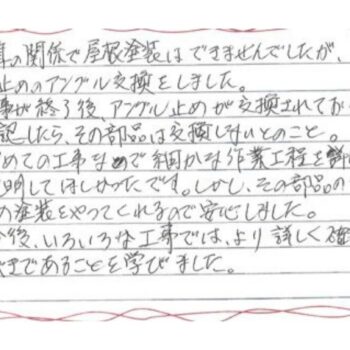 の関係で屋根塗装はできませんでしたが、
止めのアングル交換をしました。
事が終了後、アングル止めが交換されてお
認したら、その部品は交換しないとのこと。
めての工事なので細かな作業工程を詳
明してほしかったです。しかし、その部品の
の塗装をやってくれるので安心しました。
後、いろいろな工事では、より詳しく確
べきであることを学びました。